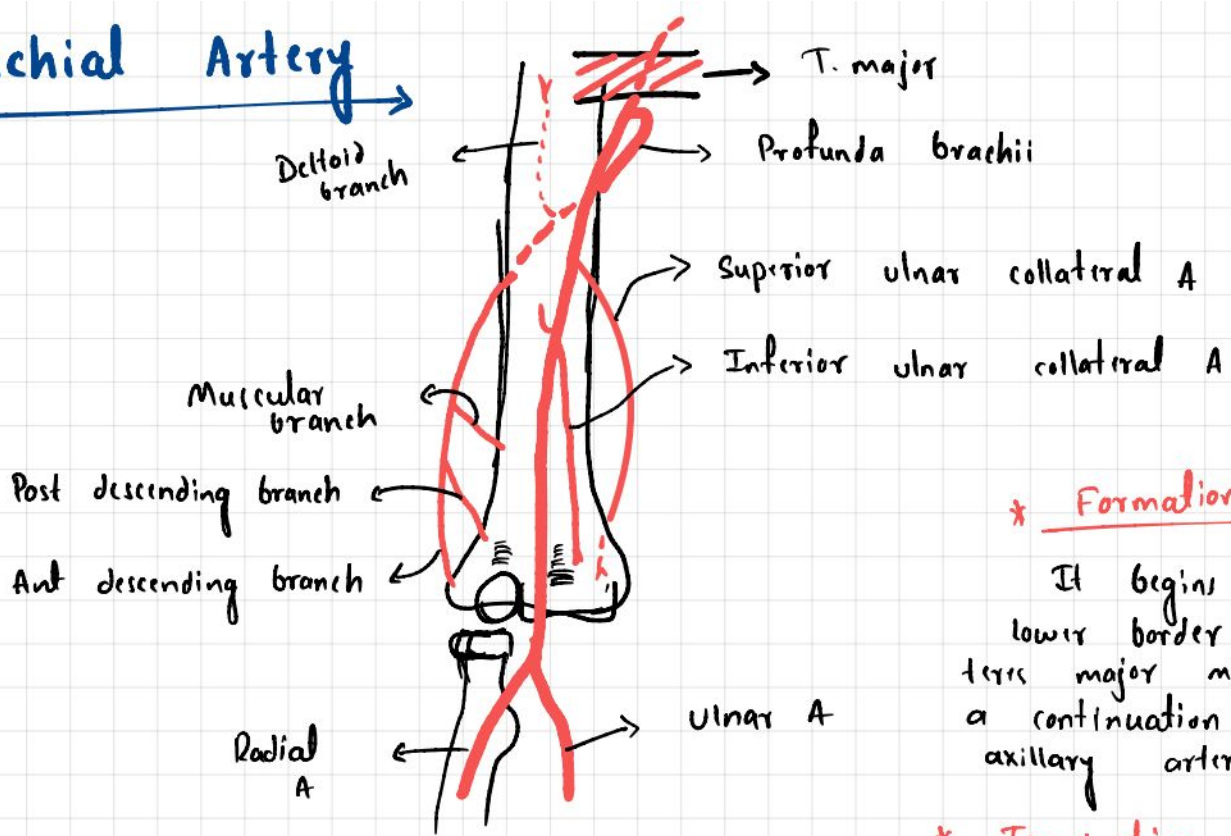 chial Artery
T. major
Deltoid
branch
Profunda brachii
Superior ulnar collateral A
Inferior ulnar collateral A
Muscular
branch
Post descending branch
Ant descending branch
* Formation
It begins
lower border
teres major m
a continuation
axillary arter
Radial
A
Ulnar A